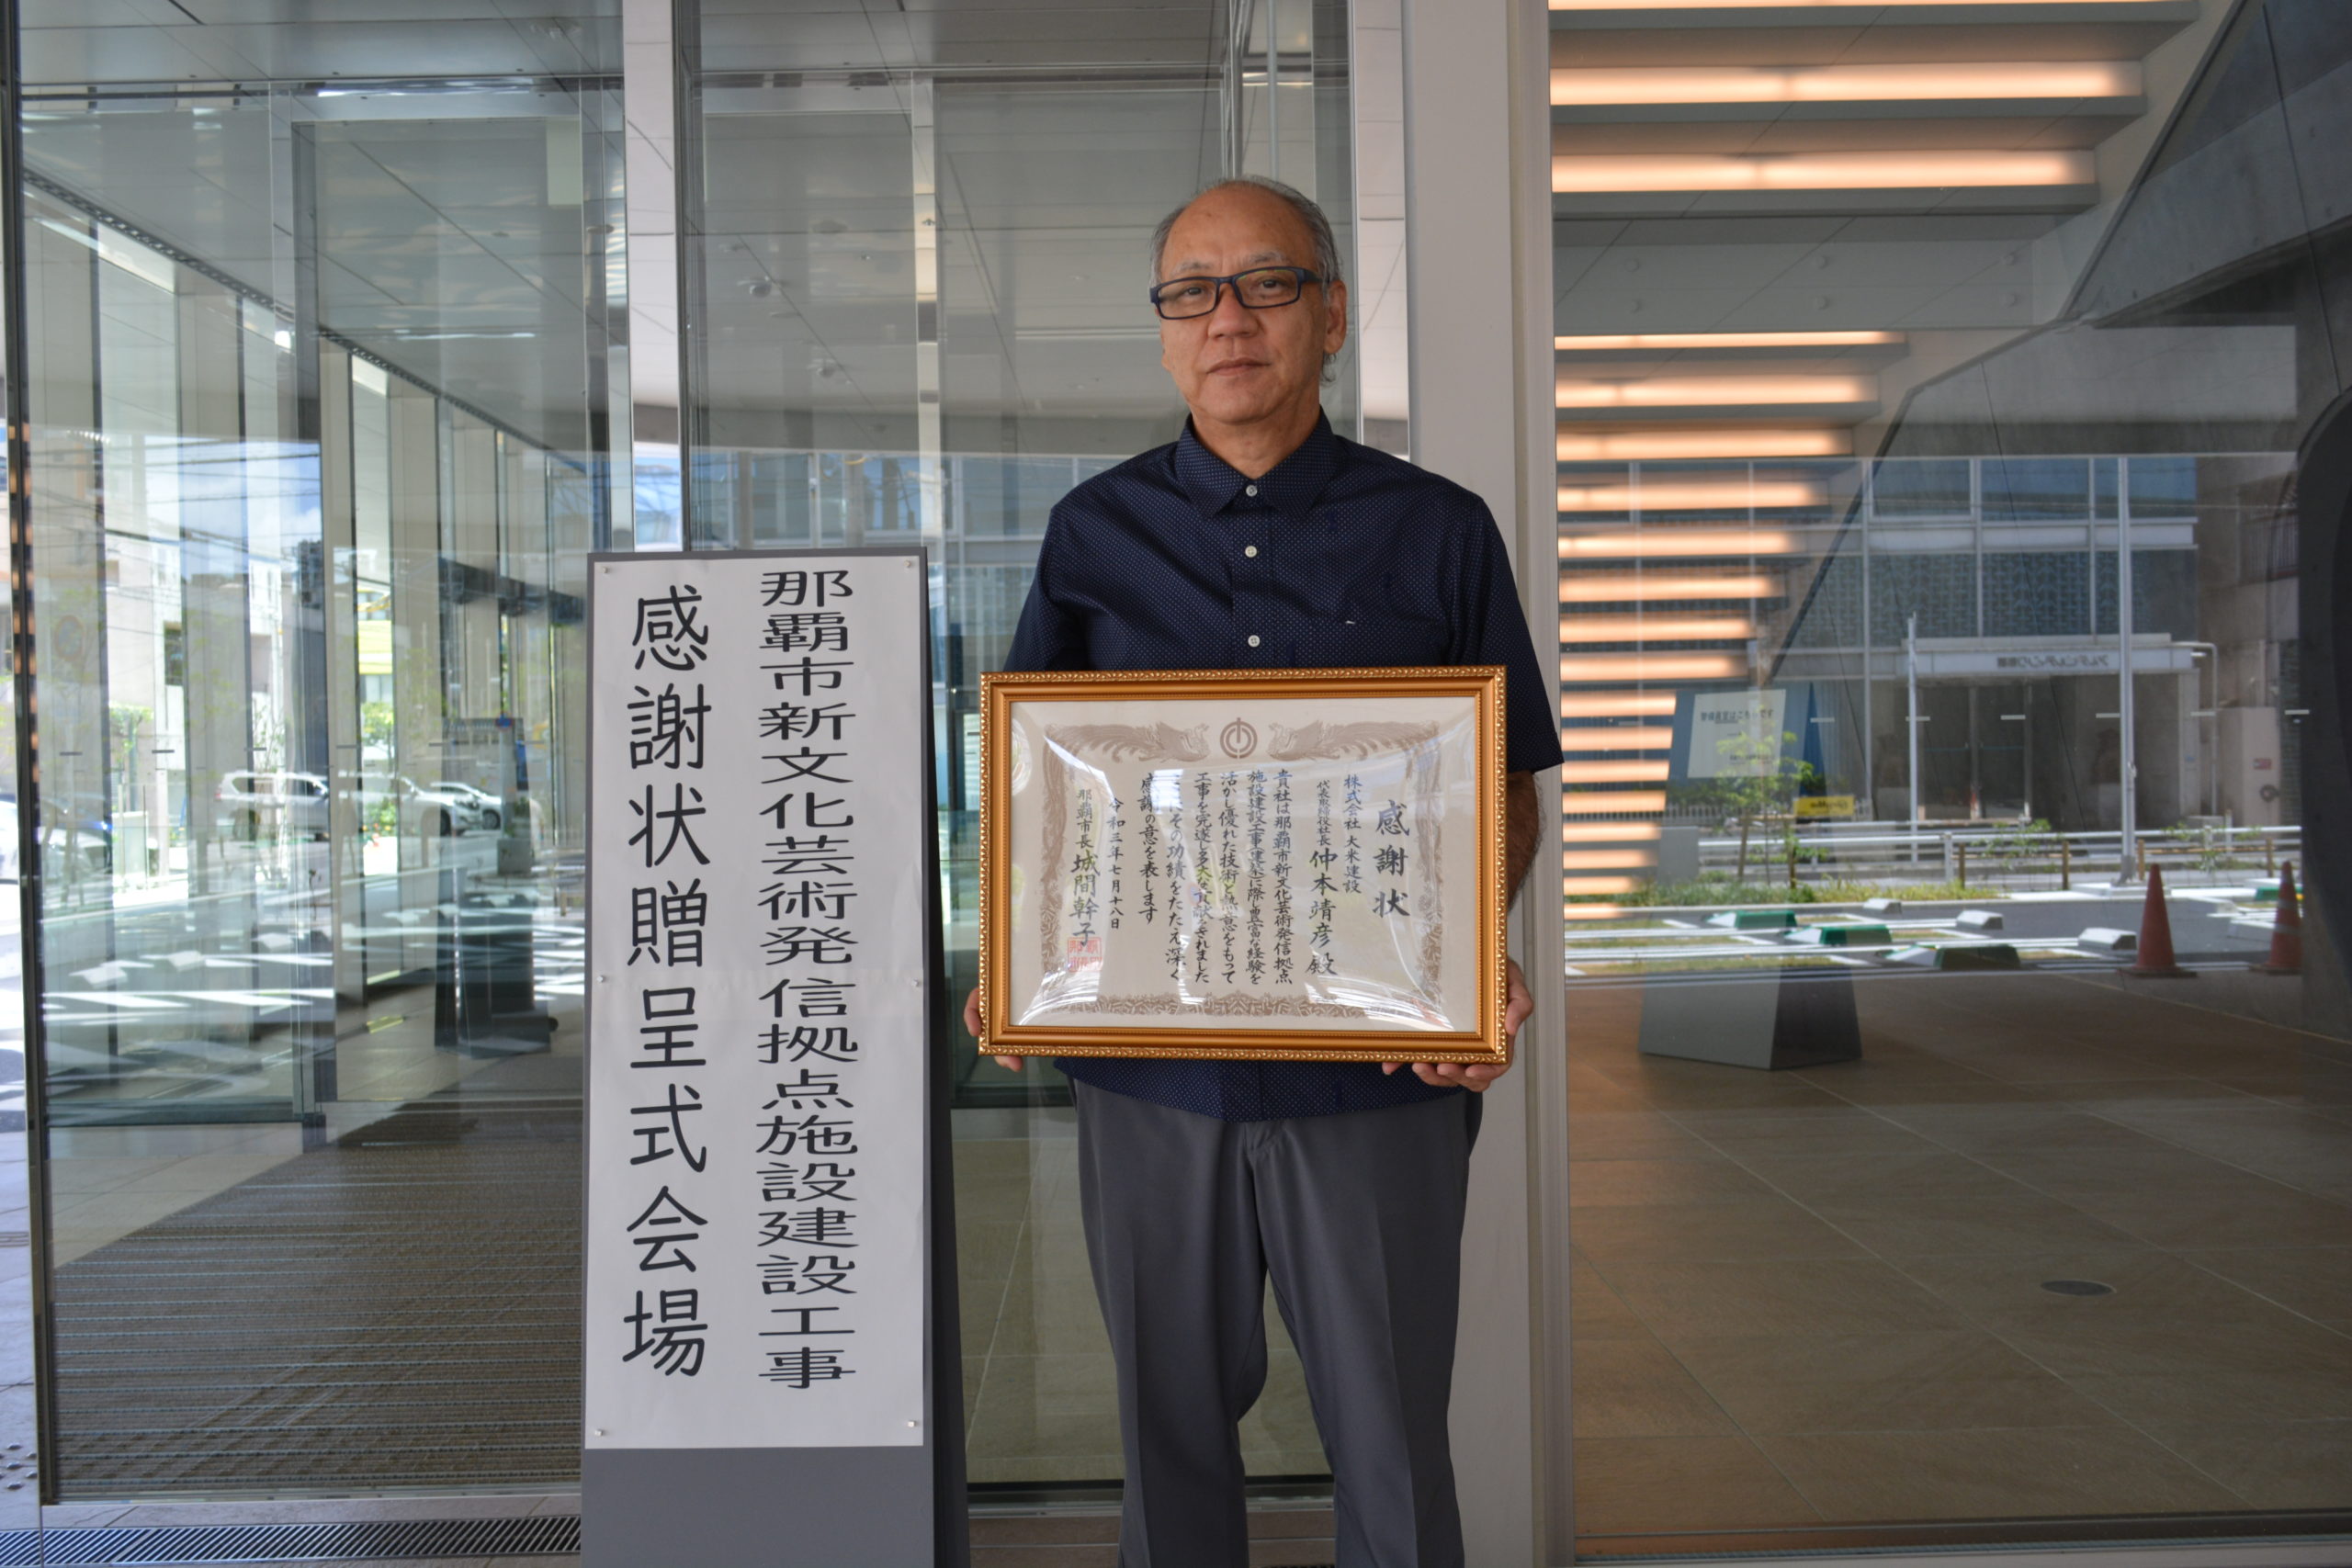 那覇市新文化芸術発信拠点施設建設工事
感謝状贈呈式会場
感謝状
株式会社 大米建設
代表取締役社長 仲本靖彦 殿
貴社は那覇市新文化芸術発信拠点
施設建設工事(建築)に際し豊富な経験を
活かし優れた技術と熱意をもって
工事を完遂し多大な貢献をされました
その功績をたたえ深く
感謝の意を表します
令和三年七月十八日
那覇市長 城間幹子